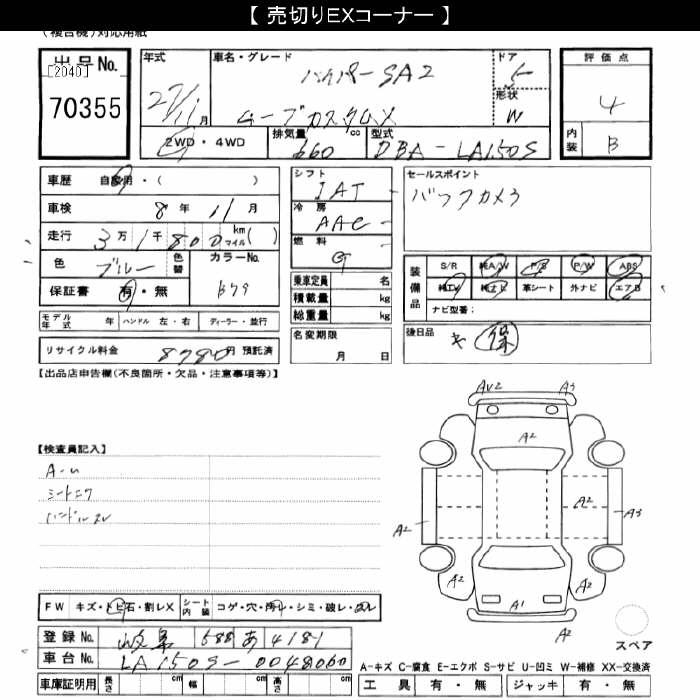 【 売切りEXコーナー 】
(複合機)対応用紙
出品No. [2040] 70355
年式 27/11月
車名・グレード ハイパーSA2 ムーブカスタムX
ドア 5
形状 W
評価点 4
内装 B
2WD・4WD
排気量 660 cc
型式 DBA-LA150S
車歴 自家用・( )
車検 8年 11月
走行 3万1千800 km マイル( )
色 ブルー 色替 カラーNo. B79
保証書 有・無
モデル年式 年 ハンドル 左・右 ディーラー・並行
リサイクル料金 8780円 預託済
シフト IAT
冷房 AAC
燃料 G
乗車定員 名
積載量 kg
総重量 kg
名変期限 月 日
セールスポイント
バックカメラ
装備品 S/R 純A/W P/S P/W ABS
純TV 純ナビ 革シート 外ナビ エアB
ナビ型番:
後日品 キ 保
【出品店申告欄(不良箇所・欠品・注意事項等)】
【検査員記入】
A-U
シートニワ
ハンドルスレ
FW キズ・トビ石・割レX シート内装 コゲ・穴・汚レ・シミ・破レ・スレ
登録No. 岐阜 588 あ 4181
車台No. LA150S-0048060
車庫証明用 長さ cm 幅 cm 高さ cm
AU2 A3
A2
A2 A2 A3
A2 A2
A1
A2
スペア
A-キズ C-腐食 E-エクボ S-サビ U-凹ミ W-補修 XX-交換済
工具 有・無 ジャッキ 有・無